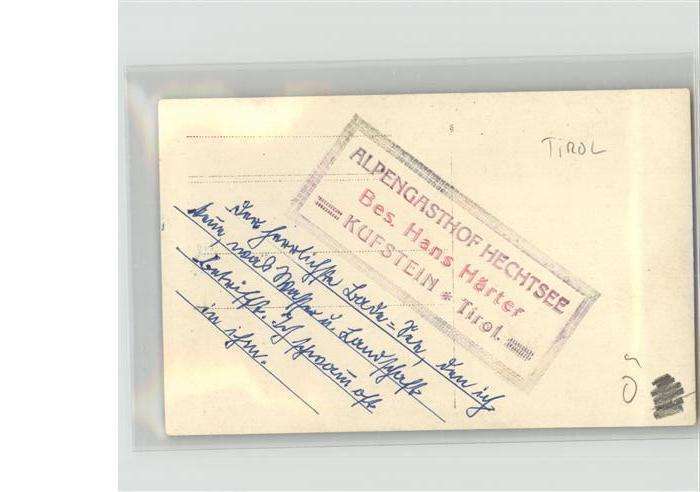 TiROL
ALPENGASTHOF HECHTSEE
Bes. Hans Härter
KUFSTEIN * Tirol.
Der herrlichste Bade-See, den ich
kenne, was Wasser u. Landschaft
betrifft. Ich schwamm oft
in ihm.
Ö